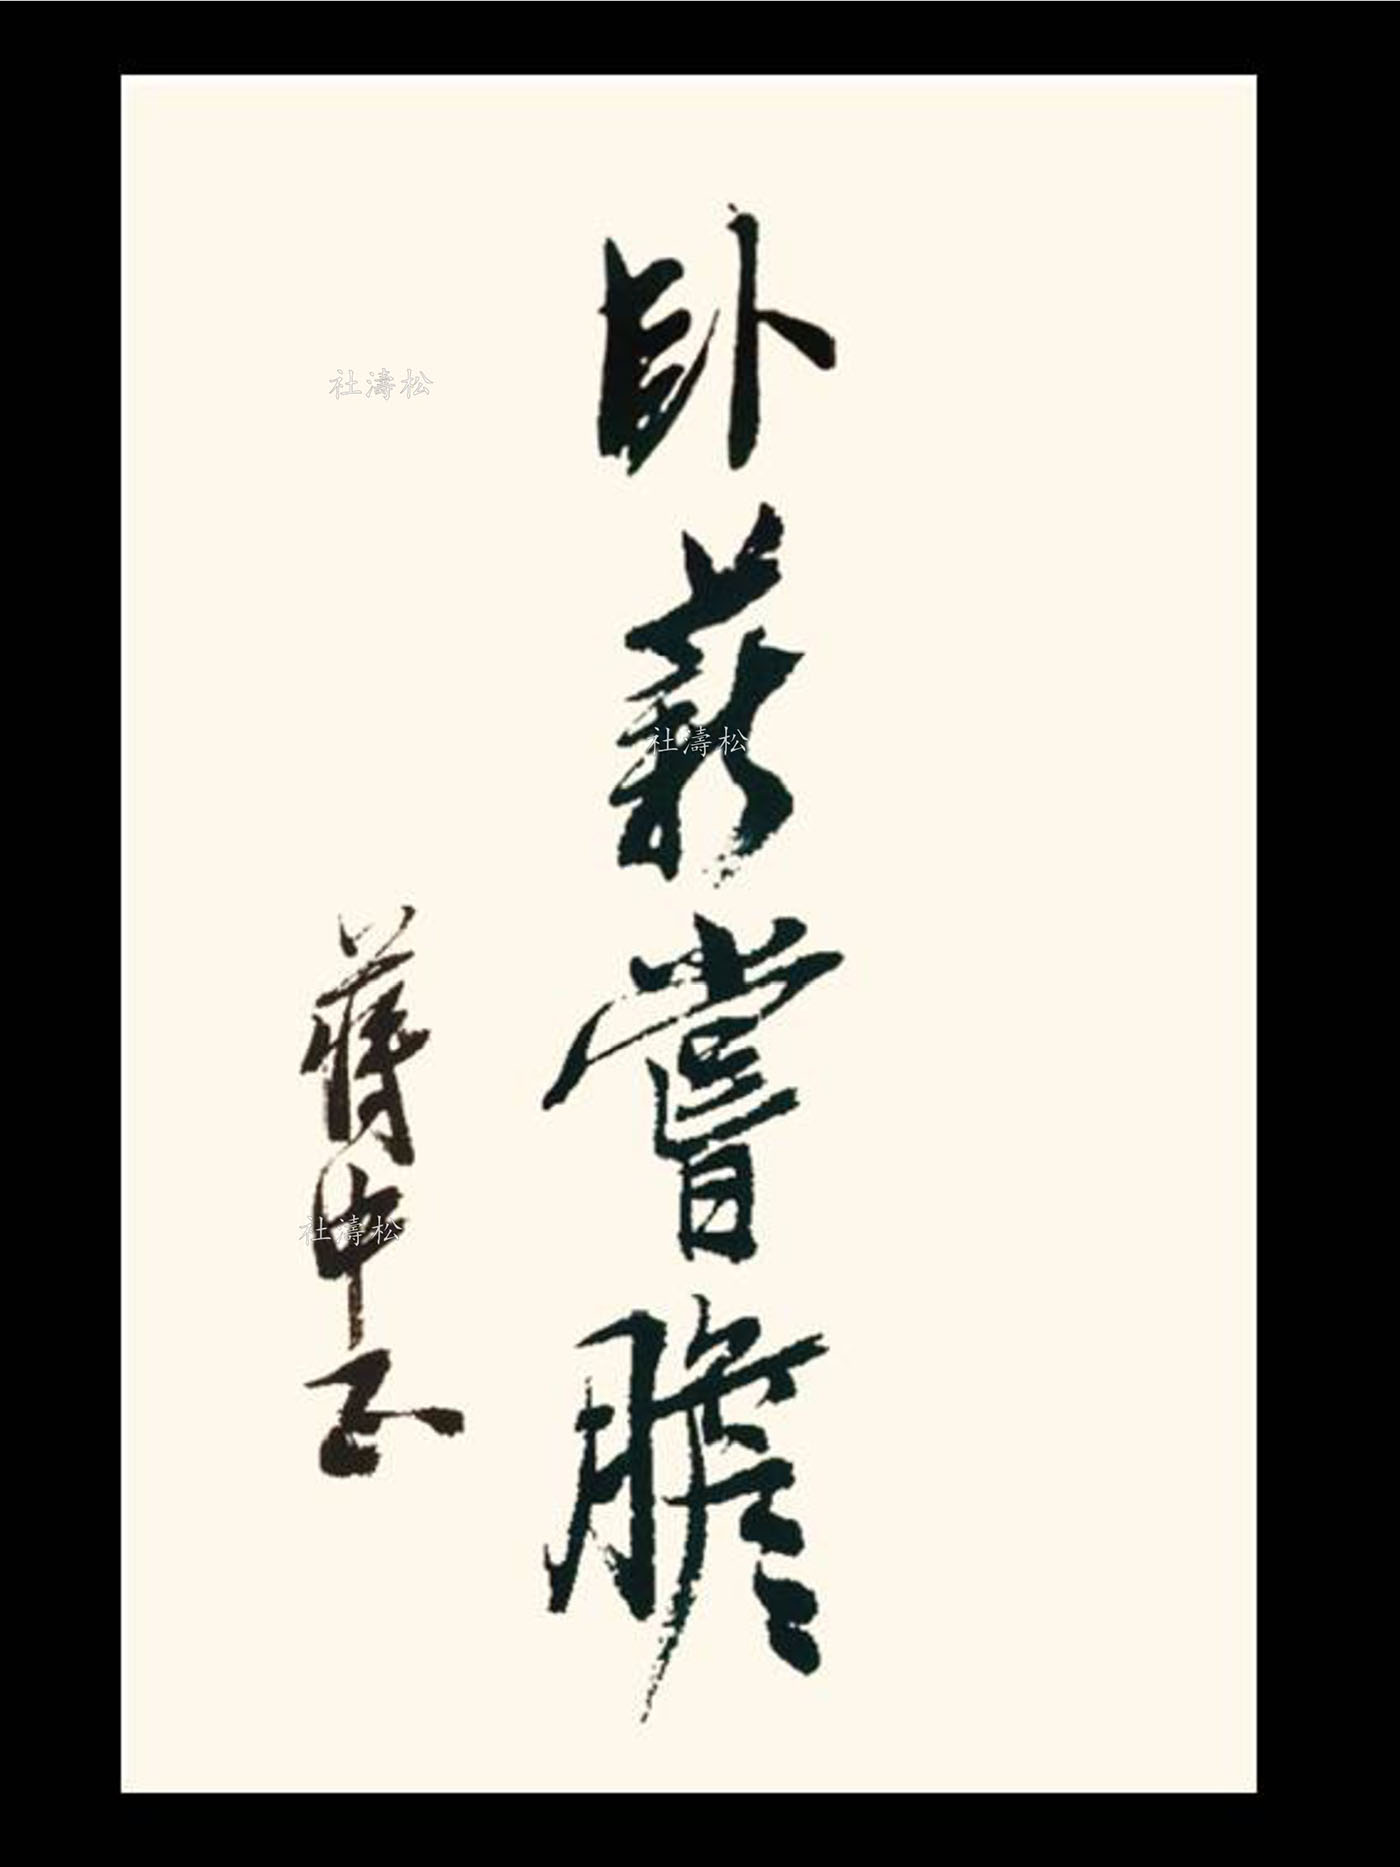 卧薪嘗膽
蔣中正
社濤松
社濤松
社濤松